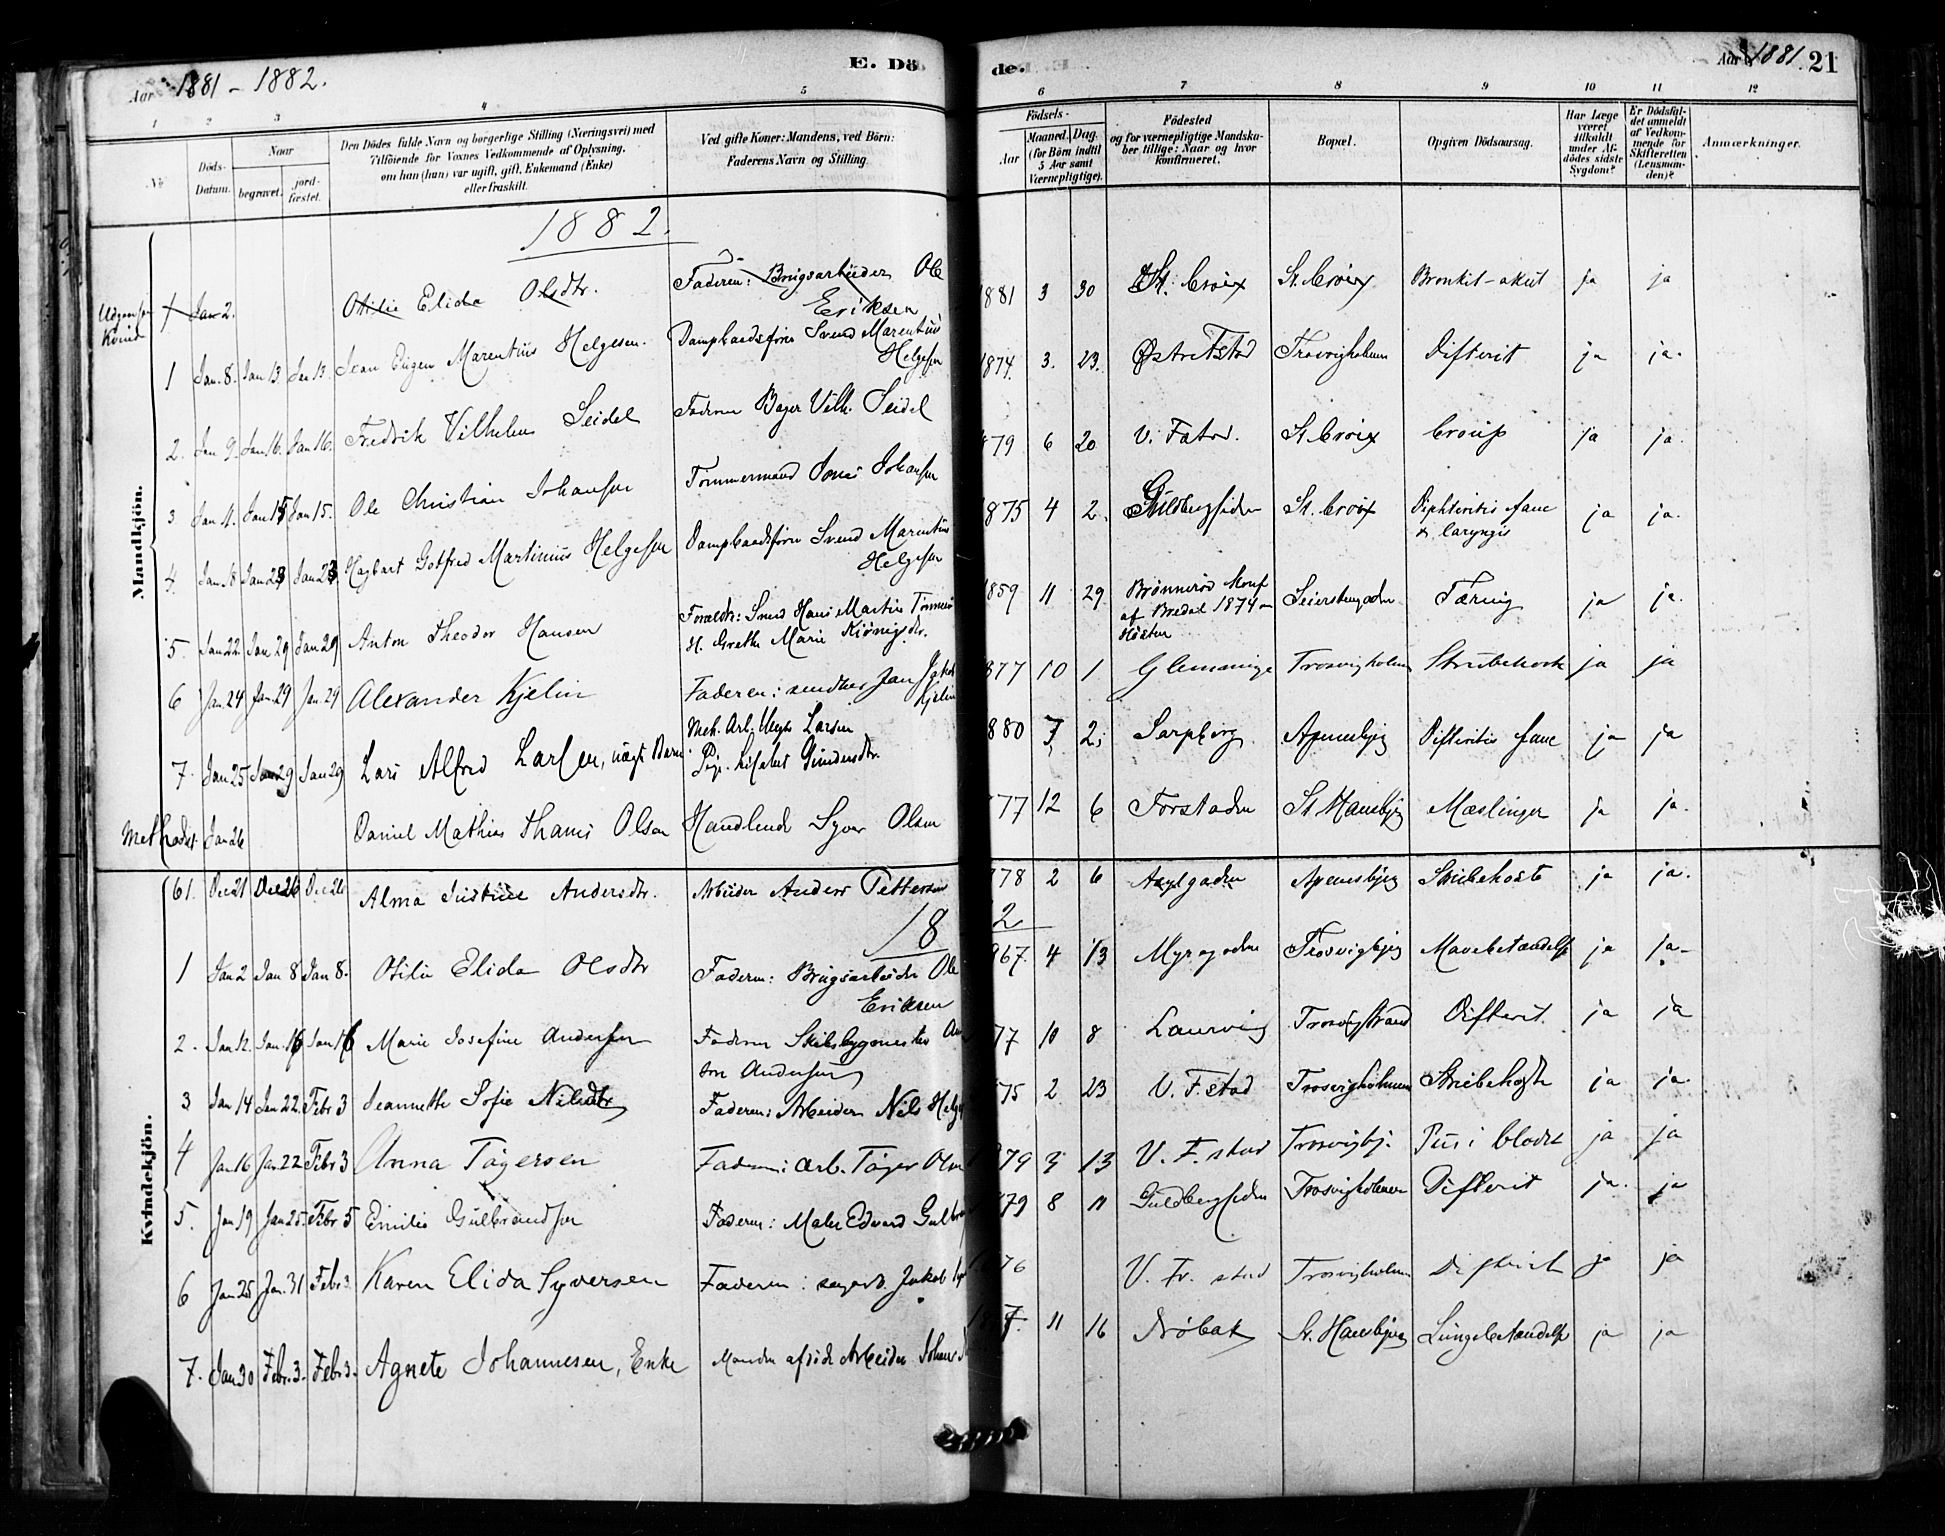 Aar 1881 - 1882.
E. Dö
de.
Aar 1881 21
1 2 3 4 5 6 7 8 9 10 11 12
No.
Döds-Datum.
Naar
begravet.
jord-fæstet.
Den Dödes fulde Navn og borgerlige Stilling (Næringsvei) med
Tilföiende for Voxnes Vedkommende af Oplysning,
om han (hun) var ugift, gift, Enkemand (Enke)
eller fraskilt.
Ved gifte Koner: Mandens, ved Börn:
Faderens Navn og Stilling.
Födsels-
Aar
Maaned. Dag.
(for Börn indtil
5 Aar samt
Værnepligtige).
Födested
og for værnepligtige Mandska-
ber tillige: Naar og hvor
konfirmeret.
Bopæl.
Opgiven Dödsaarsag.
Har Læge
været
tilkaldt
under Af-
dödes sidste
Sygdom?
Er Dödsfal-
det anmeldt
af Vedkom-
mende for
Skifteretten
(Lensman-
den)?
Anmærkninger.
1882.
Mandkjön.
Kvind
1 Jan 2. Otilie Elida Olsdtr. Faderen: Brugsarbeider Ole Eriksen 1881 3 30 St. Croix St. Croix Bronkit - akut ja ja
1 Jan. 8. Jan 13. Jan 13. Jean Eugen Marentius Helgesen. Svend Marentius Helgesen 1874. 3. 23. Trosvigholmen Difterit ja ja.
2. Jan. 9. Jan. 16. Jan 16. Fredrik Vilhelm Seidel Faderen Bager Vilh. Seidel 79 6 20 V. Fstad. St. Croix Croup ja ja.
3 Jan 11. Jan 15 Jan 15. Ole Christian Johansen Tømmermand Johansen 875 4 2. Guldbergsiden St. Croix Diphteritis fauc & laryngis ja ja.
4. Jan. 18 Jan 23 Jan 23. Hagbart Gotfred Martinius Helgesen Svend Marentius Helgesen 859 11 29. Brønnerød Konf af Bredal 1874 - Høsten Tæring ja ja.
5. Jan 22. Jan 29 Jan 29 Anton Theodor Hansen Hans Martin Grethe Marie
6 Jan. 24 Jan. 29 Jan. 29 Alexander Kjelin Faderen: Jan Jakob Kjelin 877 10 1 Glemminge Trosvigholmen Strubehoste ja ja
7. Jan 25 Jan 29 Jan 29 Lars Alfred Larsen, uægt. Barn Larsen 880 7 2. Sarpsborg. Apenesbjeg Difteritis fauc ja ja
Methodist. Jan 26 Daniel Mathias Olsen Handlende Syver Olsen 77 12 6 Forstaden St Hansbjeg Mæslinger ja ja.
Kvindekjön.
61. Dec 21 Dec 26 Dec 26 Alma Justine Andersdtr. Arbeider Anders Pettersen 878 2 6 Apenesbjeg Strubehoste ja ja.
18 2
1 Jan 2 Jan 8 Jan 8. Otilie Elida Olsdtr Faderen: Brugsarbeider Ole Eriksen 867. 4 13 Myragaden Trosvigbjeg Mavebetændelse ja ja -
2. Jan 12. Jan. 16 Jan 16 Marie Josefine Andersen Faderen Skibsbygmester An ton Andersen 77 10 8 Laurvig Trosvigstrand Difterit. ja ja
3 Jan 14 Jan 22. Febr 3 Jeannette Sofie Nilsdtr Faderen: Arbeider Nils 75 2 23 V. Fstad Trosvigholmen Strubehoste ja ja.
4 Jan 16 Jan. 22 Febr 3 Anna Tøgersen Faderen: arb. Tøger Olsen 79 3 13 V. F. stad Trosvigbj. Pus i blodet ja ja
5. Jan 19 Jan 25. Febr 5 Emilie Gulbrandsen Faderen: Maler Edvard Gulbr 79 8 11 Guldbergsiden Trosvigholmen Difterit ja. ja
6 Jan 25 Jan. 31 Febr 3. Karen Elida Syversen Faderen: Jakob 76 V. Fr. stad Trosvigholmen Difterit ja ja
7. Jan 30 Febr. 3. Febr 3. Agnete Johannesen, Enke Manden afdøde Arbeider 11 16 Drøbak St. Hansbjeg Lungebetændelse ja ja